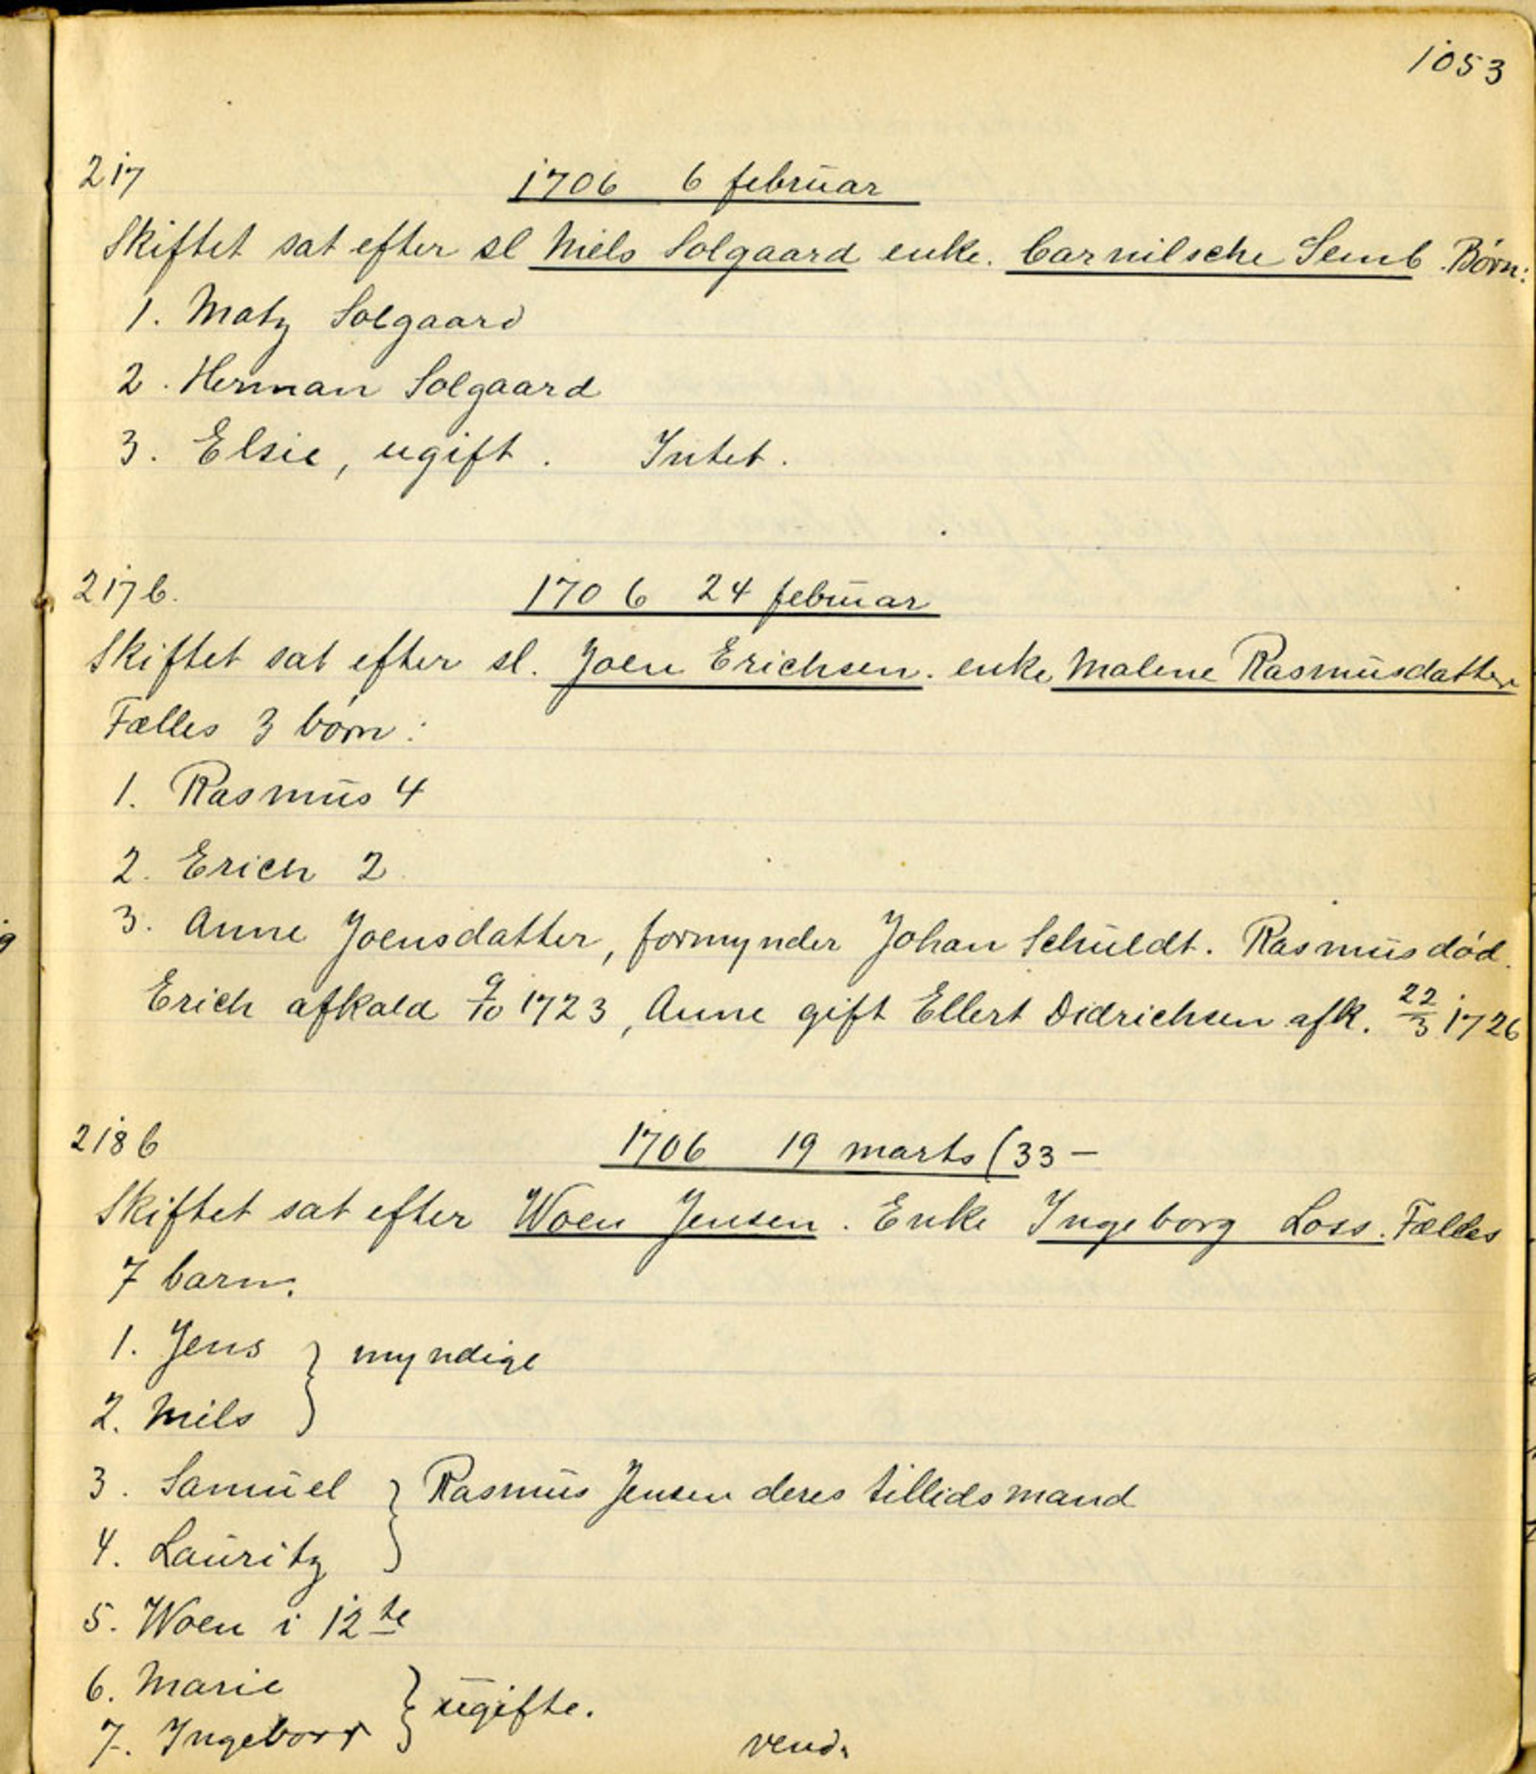 1053
217
1706 6 februar
Skiftet sat efter sl Niels Solgaard enke. Carnilsche Semb. Børn:
1. Matz Solgaard
2. Herman Solgaard
3. Elsie, ugift. Intet.
217 b.
1706 24 februar
Skiftet sat efter sl. Joen Erichsen. enke Malene Rasmusdatter
Fælles 3 børn:
1. Rasmus 4
2. Erich 2
3. Anne Joensdatter, formynder Johan Schuldt. Rasmus død.
Erich afkald 9/10 1723, Anne gift Ellert Didrichsen afk. 22/3 1726
218 b
1706 19 marts (33 –
Skiftet sat efter Woen Jensen. Enke Ingeborg Loss. Fælles
7 barn.
1. Jens } myndige
2. Niels
3. Samuel } Rasmus Jensen deres tillidsmand
4. Lauritz
5. Woen i 12te
6. Marie } ugifte.
7. Ingeborg
vend.